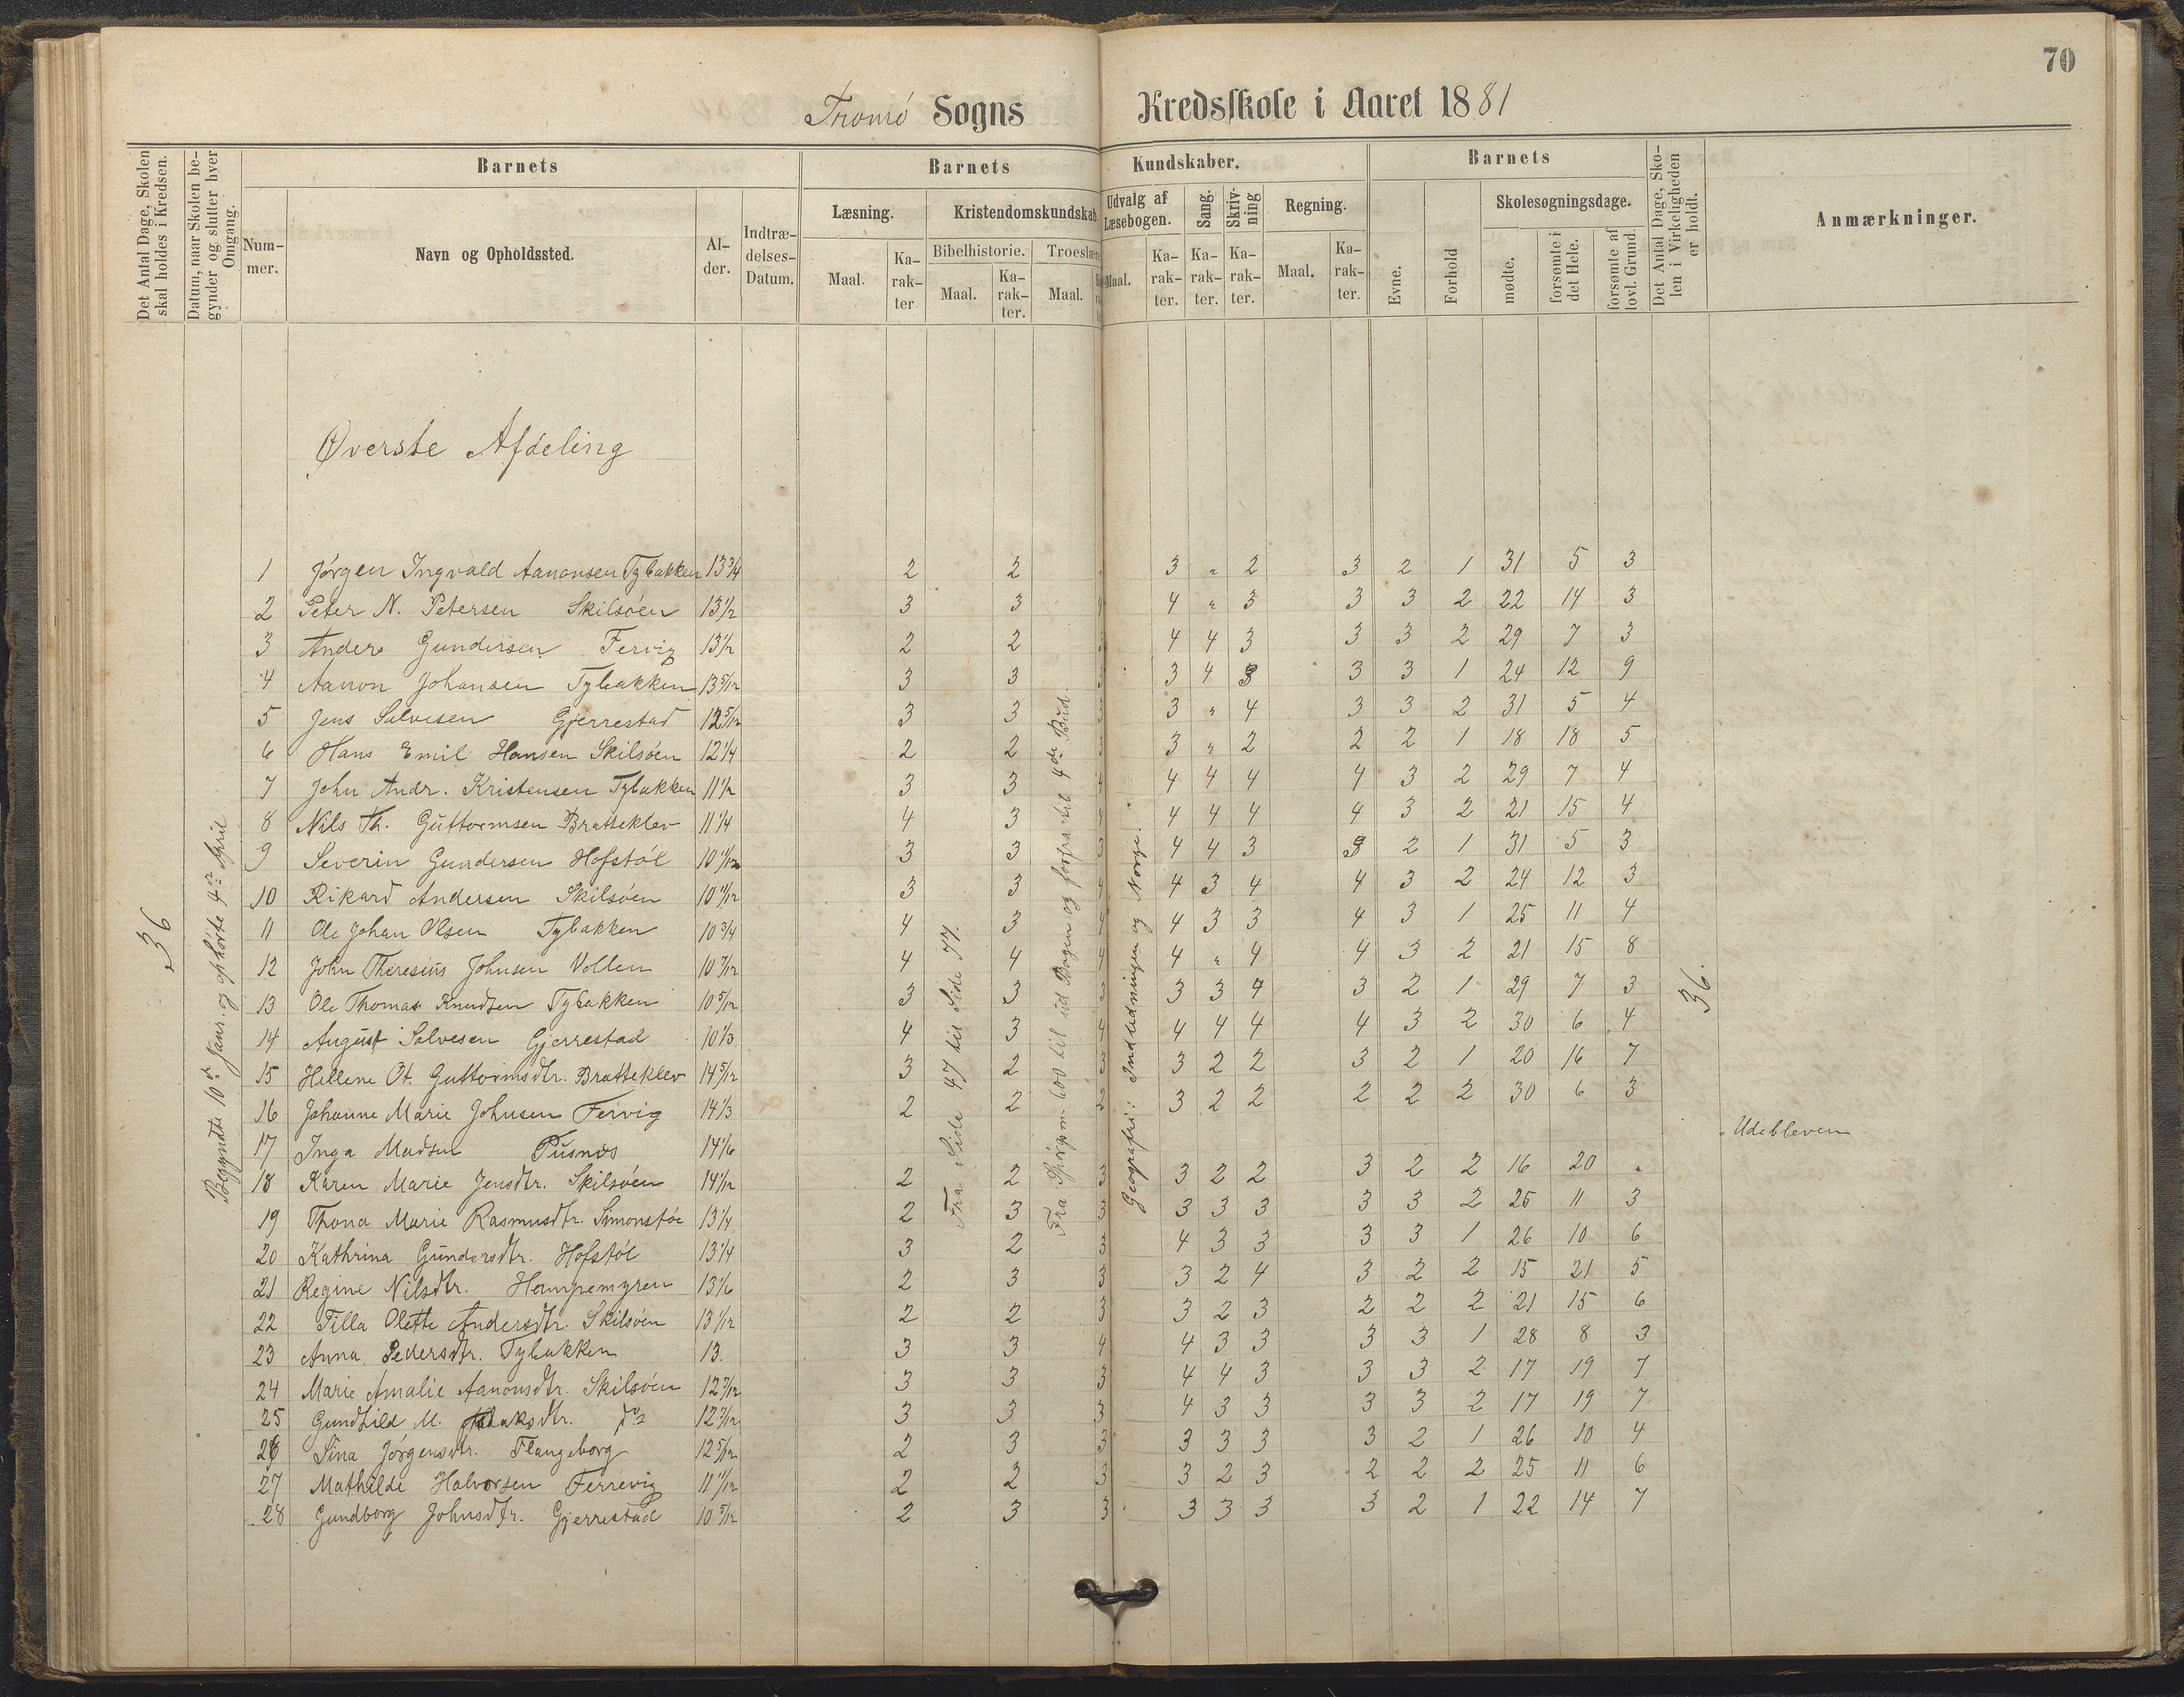 70
Tromö Sogns Kredsskole i Aaret 1881
Det Antal Dage, Skolen skal holdes i Kredsen.
Datum, naar Skolen begynder og slutter hver Omgang.
Barnets
Nummer.
Navn og Opholdssted.
Alder.
Indtrædelses-Datum.
Barnets Kundskaber.
Læsning.
Maal.
Karakter
Kristendomskundskab.
Bibelhistorie.
Maal.
Karakter.
Troeslær
Maal.
Udvalg af Læsebogen.
Maal.
Karakter.
Sang.
Karakter.
Skrivning
Karakter.
Regning.
Maal.
Karakter.
Barnets
Evne.
Forhold
Skolesøgningsdage.
mødte.
forsømte i det Hele.
forsømte af lovl. Grund.
Det Antal Dage, Skolen i Virkeligheden er holdt.
Anmærkninger.
Øverste Afdeling
36
Begyndte 10de Janr. og ophörte 4de April
Fra Side 47 til Side 77.
til ud Bogen og forfra til 4de Bud.
Geografi: Indledningen og Norge.
36.
1 Jörgen Ingvald Aanonsen Tybakken 13 3/4 2 2 3 " 2 3 2 1 31 5 3
2 Peter N. Petersen Skilsöen 13 1/2 3 3 4 4 " 3 3 3 2 22 14 3
3 Anders Gundersen Fervig 13 1/2 2 2 3 4 4 3 3 3 2 29 7 3
4 Aanon Johansen Tybakken 13 5/12 3 3 3 3 4 3 3 3 1 24 12 9
5 Jens Salvesen Gjerrestad 12 5/12 3 3 3 3 " 4 3 3 2 31 5 4
6 Hans Emil Hansen Skilsöen 12 1/4 2 2 3 3 " 2 2 2 1 18 18 5
7 John Andr. Kristensen Tybakken 11 1/2 3 3 4 4 4 4 4 3 2 29 7 4
8 Nils Th. Guttormsen Bratteklev 11 1/4 4 3 4 4 4 4 4 3 2 21 15 4
9 Severin Gundersen Hofstöl 10 11/12 3 3 3 4 4 3 3 2 1 31 5 3
10 Rikard Andersen Skilsöen 10 11/12 3 3 4 4 3 4 4 3 2 24 12 3
11 Ole Johan Olsen Tybakken 10 3/4 4 3 4 4 3 3 4 3 1 25 11 4
12 John Theresius Johnsen Vollen 10 7/12 4 4 4 4 " 4 4 3 2 21 15 8
13 Ole Thomas Knudsen Tybakken 10 5/12 3 3 3 3 3 4 3 2 1 29 7 3
14 August Salvesen Gjerrestad 10 1/3 4 3 4 4 4 4 4 3 2 30 6 4
15 Hellene Ot. Guttormsdtr. Bratteklev 14 5/12 3 2 3 3 2 2 3 2 1 20 16 7
16 Johanne Marie Johnsen Fervig 14 1/3 2 2 3 3 2 2 2 2 2 30 6 3
17 Inga Madsen Pusnæs 14 1/6 Udebleven
18 Karen Marie Jensdtr. Skilsöen 14 1/12 2 2 3 3 2 2 3 2 2 16 20 "
19 Thona Marie Rasmusdtr. Simonstöe 13 1/4 2 3 3 3 3 3 3 3 2 25 11 3
20 Kathrina Gundersdtr. Hofstöl 13 1/4 3 2 3 4 3 3 3 3 1 26 10 6
21 Regine Nilsdtr. Hampemyren 13 1/6 2 3 3 3 2 4 3 2 2 15 21 5
22 Tilla Olette Andersdtr. Skilsöen 13 1/12 2 2 3 3 2 3 2 2 2 21 15 6
23 Anna Pedersdtr. Tybakken 13. 3 3 4 4 3 3 3 3 1 28 8 3
24 Marie Amalie Aanonsdtr. Skilsöen 12 7/12 3 3 3 4 4 3 3 3 2 17 19 7
25 Gundhild M. do 12 7/12 3 3 3 4 3 3 3 3 2 17 19 7
26 Sina Jörgensdtr. Flangeborg 12 5/12 2 3 3 3 3 3 3 2 1 26 10 4
27 Mathilde Halvorsen Ferrevig 11 11/12 2 2 3 3 2 3 2 2 2 25 11 6
28 Gundborg Johnsdtr. Gjerrestad 10 5/12 2 3 3 3 3 3 3 2 1 22 14 7